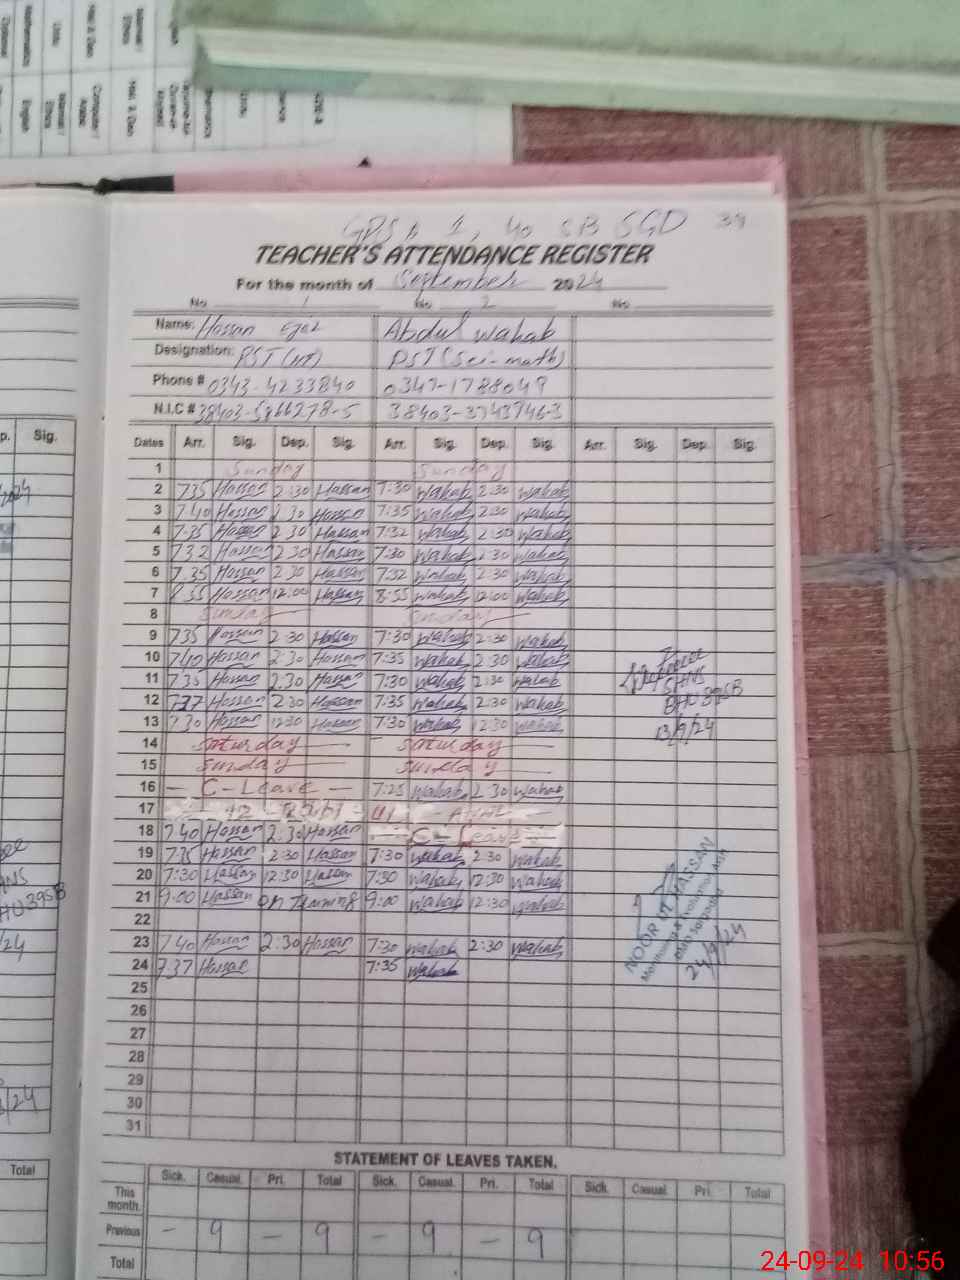 GPS # 1, 40 SB SGD 39
TEACHER'S ATTENDANCE REGISTER
For the month of September 2024
No 1 No 2 No
Name: Hassan Ejaz Abdul Wahab
Designation: PST (sci-math)
Phone # 0343-4233840 0347-1788049
N.I.C # 38403-3743746-3
Dates Arr. Sig. Dep. Sig. Arr. Sig. Dep. Sig. Arr. Sig. Dep. Sig.
1 Sunday Sunday
2 735 Hassan 2:30 Hassan 7:30 Wahab 2:30 Wahab
3 7.40 Hassan 2.30 Hassan 7:35 Wahab 2:30 Wahab
4 7.35 Hassan 2.30 Hassan 7:32 Wahab 2:30 Wahab
5 732 Hassan 2.30 Hassan 7:30 Wahab 2:30 Wahab
6 7.35 Hassan 2.30 Hassan 7:32 Wahab 2:30 Wahab
7 8.55 Hassan 12:00 Hassan 8:55 Wahab 12:00 Wahab
8 Sunday Sunday
9 735 Hassan 2:30 Hassan 7:30 Wahab 2:30 Wahab
10 740 Hassan 2:30 Hassan 7:35 Wahab 2:30 Wahab
11 735 Hassan 2:30 Hassan 7:30 Wahab 2:30 Wahab
12 737 Hassan 2:30 Hassan 7:35 Wahab 2:30 Wahab
13 7.30 Hassan 12:30 Hassan 7:30 Wahab 12:30 Wahab
SHNS
BHU 39SB
13/9/24
14 Saturday Saturday
15 Sunday Sunday
16 - C-Leave - 7:25 Wahab 2:30 Wahab
17 12
18 7.40 Hassan 2:30 Hassan C-Leave
19 7.35 Hassan 2:30 Hassan 7:30 Wahab 2:30 Wahab
20 7:30 Hassan 12:30 Hassan 7:30 Wahab 12:30 Wahab
21 9:00 Hassan on Training 9:00 Wahab 12:30 Wahab
22
23 740 Hassan 2:30 Hassan 7:30 Wahab 2:30 Wahab
24 737 Hassan 7:35 Wahab
NOOR UL HASSAN
Monitoring & Evaluation Asst
24/9/24
25
26
27
28
29
30
31
STATEMENT OF LEAVES TAKEN.
Sick. Casual. Pri. Total Sick. Casual. Pri. Total Sick. Casual. Pri. Total
This month.
Previous - 9 - 9 - 9 - 9
Total
p. Sig.
HU 39SB
Total
24-09-24 10:56